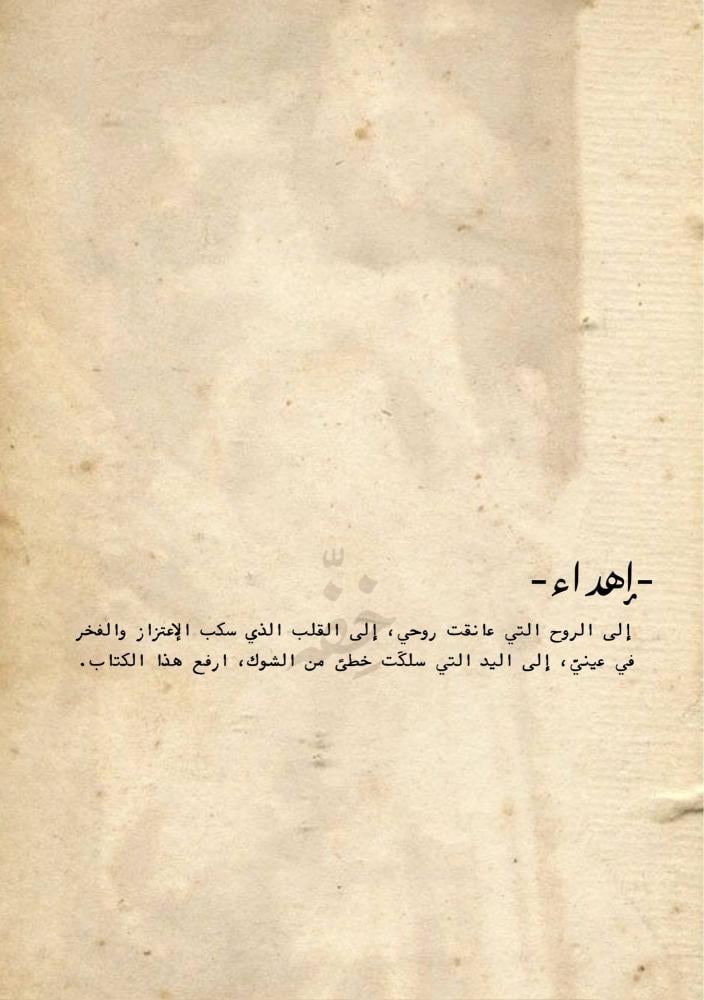 -إهداء-
إلى الروح التي عانقت روحي، إلى القلب الذي سكب الإعتزاز والفخر
في عينيّ، إلى اليد التي سلكَت خطئ من الشوك، ارفع هذا الكتاب.